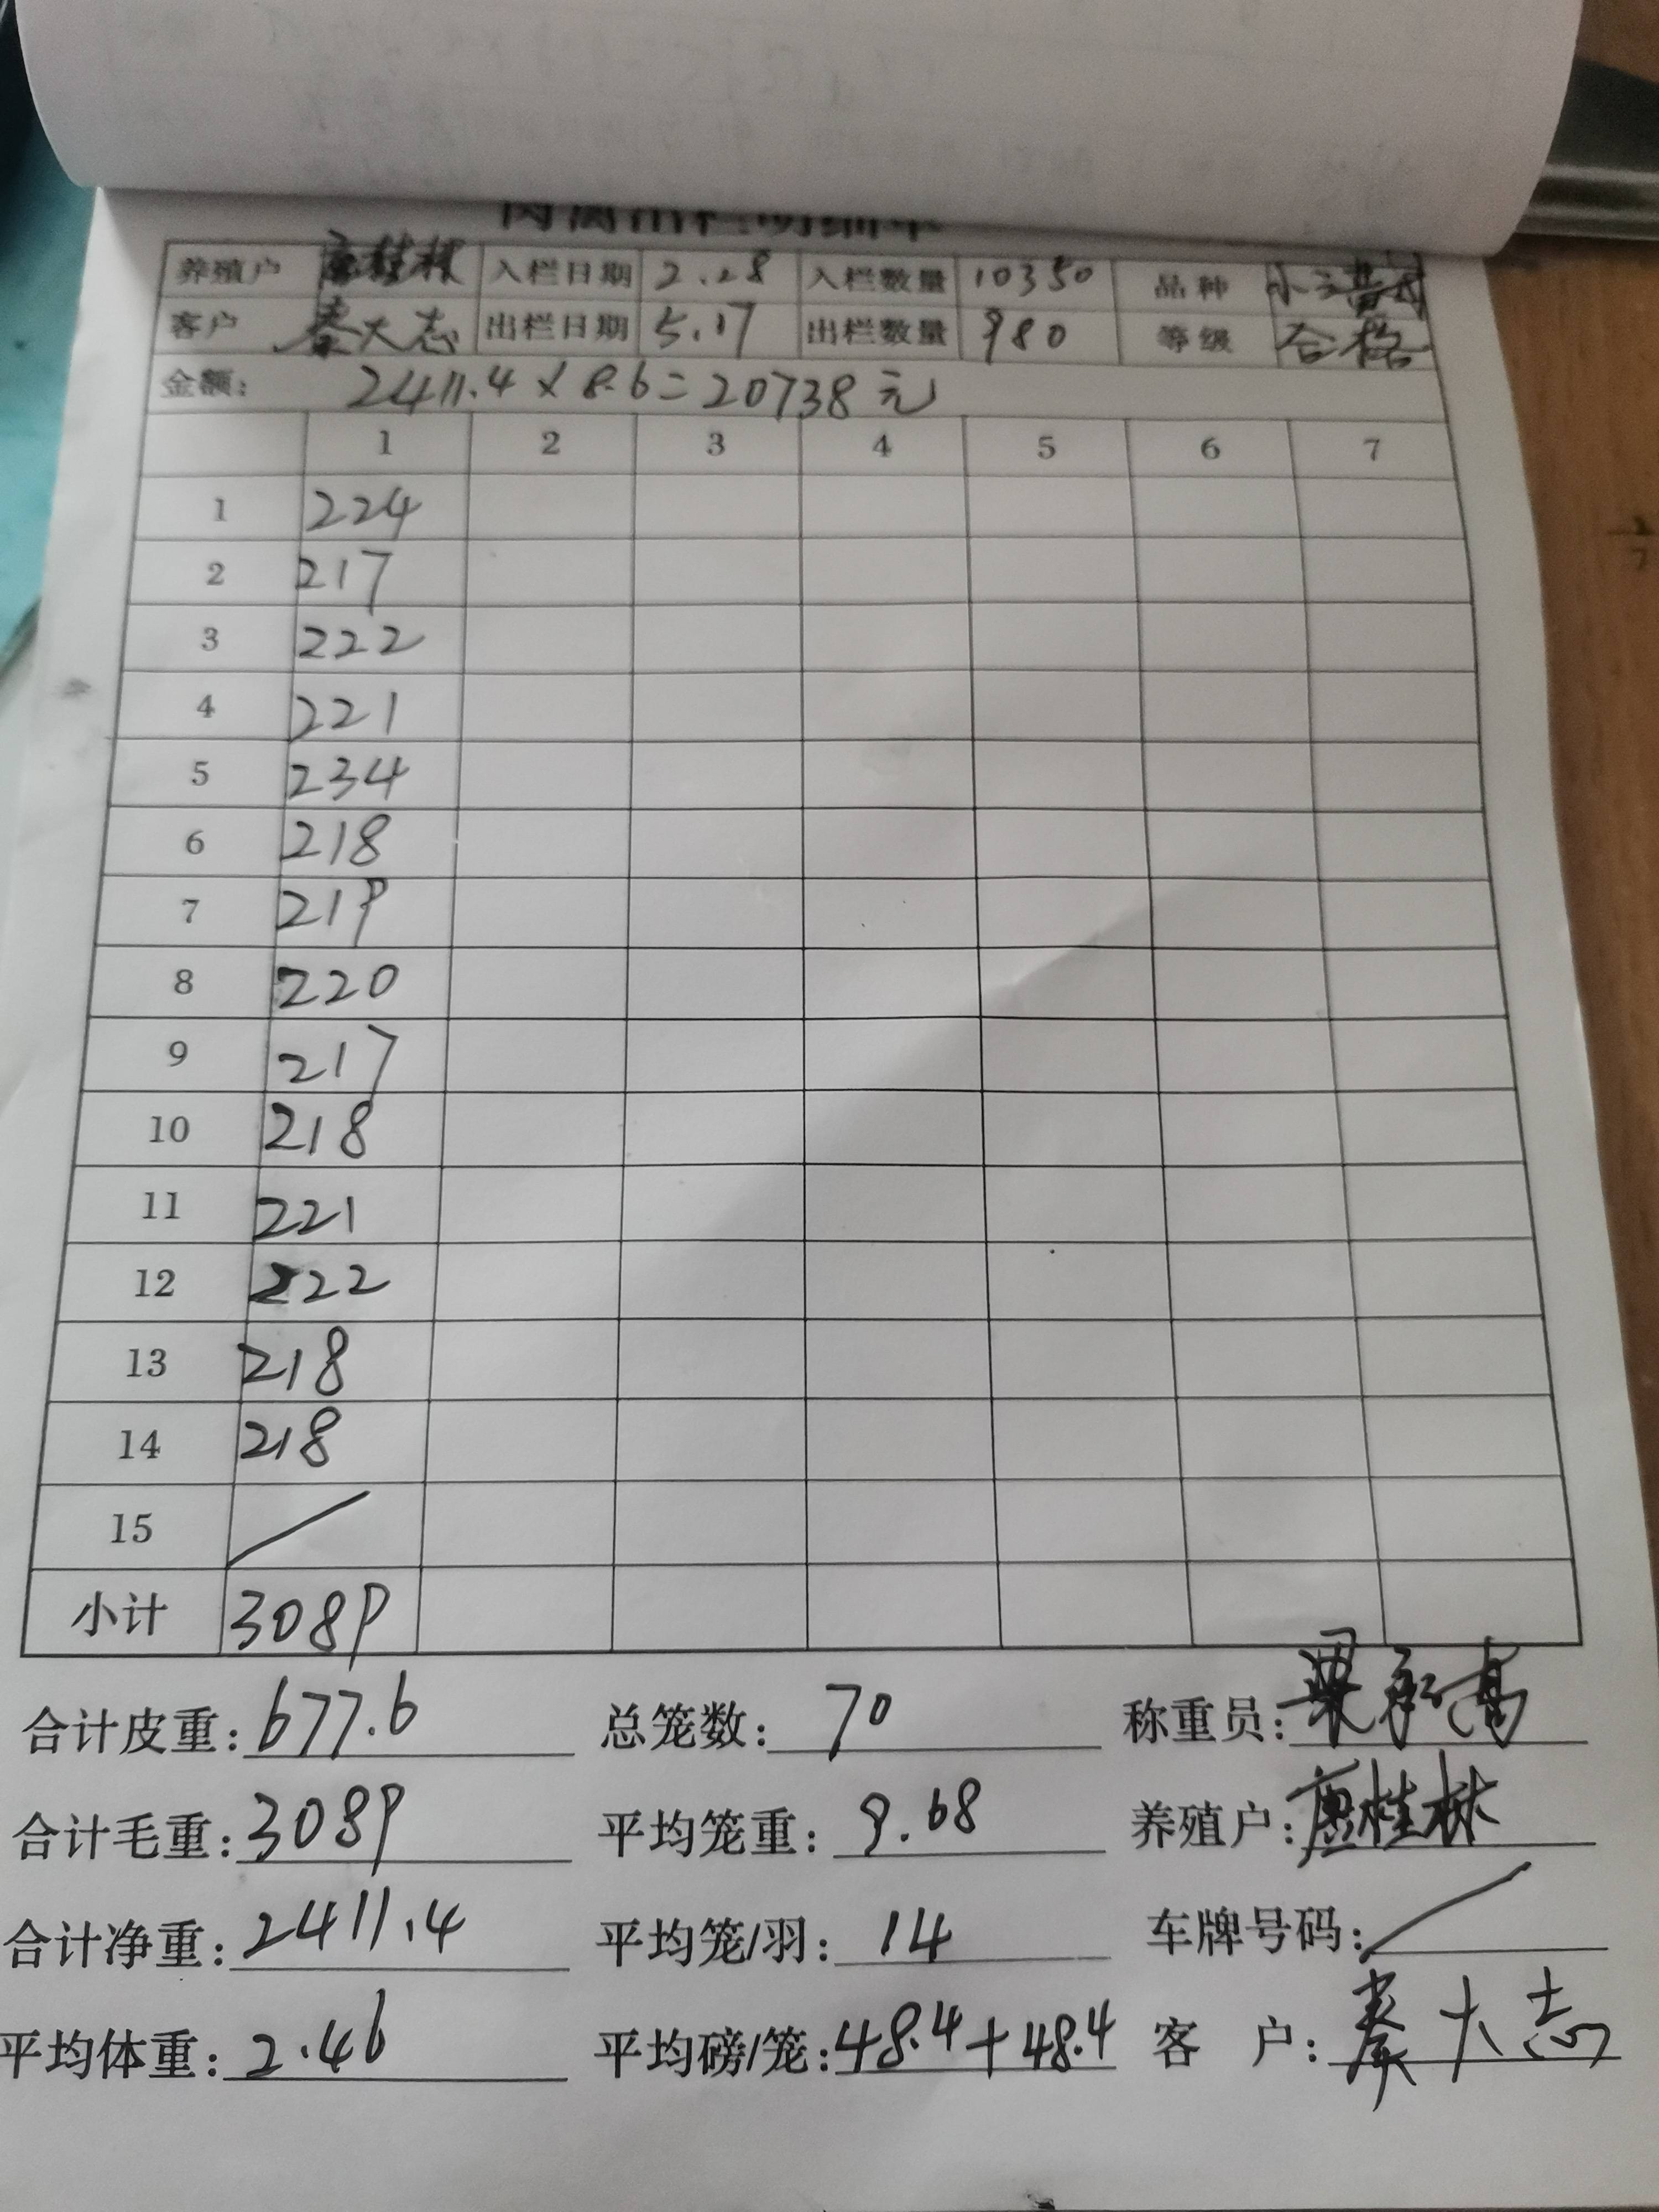 养殖户 唐桂林 入栏日期 2.28 入栏数量 10350 品种
客户 秦大志 出栏日期 5.17 出栏数量 980 等级 合格
金额: 2411.4×8.6=20738元
1 2 3 4 5 6 7
1 224
2 217
3 222
4 221
5 234
6 218
7 219
8 220
9 217
10 218
11 221
12 222
13 218
14 218
15 /
小计 3089
合计皮重: 677.6 总笼数: 70 称重员:
合计毛重: 3089 平均笼重: 9.68 养殖户: 唐桂林
合计净重: 2411.4 平均笼/羽: 14 车牌号码: /
平均体重: 2.46 平均磅/笼: 48.4+48.4 客 户: 秦大志